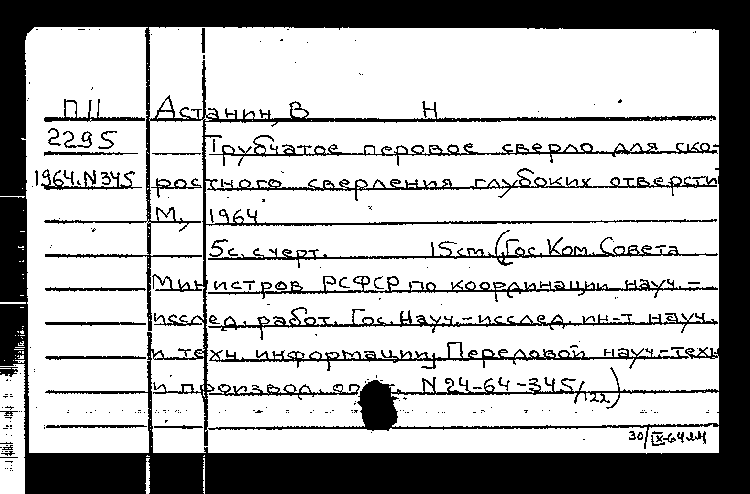 П 11 Астанин, В Н
2295 Трубчатое перовое сверло для ско-
1964.N345 ростного сверления глубоких отверсти
М., 1964
5с. с черт. 15см. (Гос. Ком. Совета
Министров РСФСР по координации науч.-
исслед. работ. Гос. Науч.-исслед. ин-т науч.
и техн. информации. Передовой науч.-техн
и производ. N 24-64-345/122)
30/IX-64